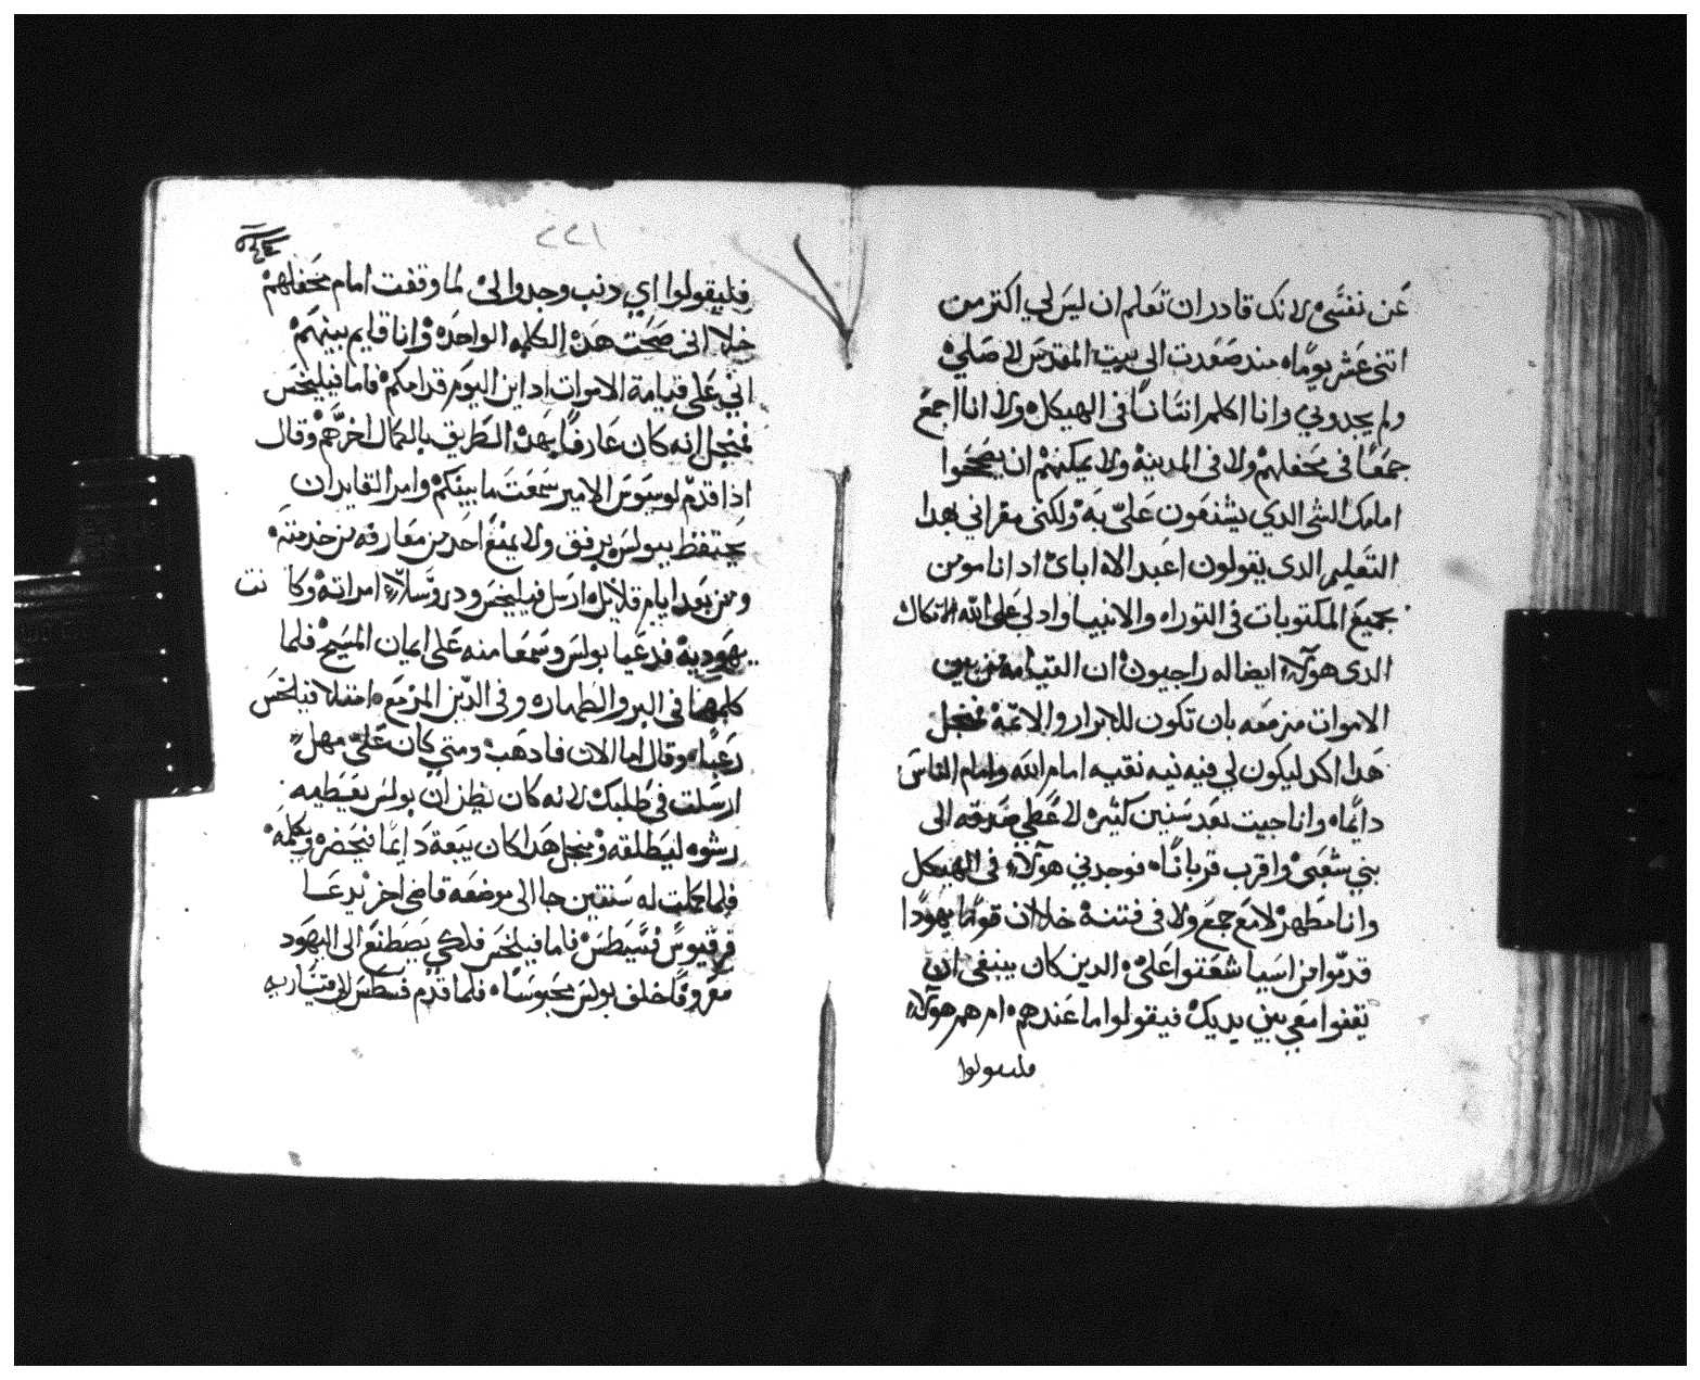 عن نفسي لانك قادر ان تعلم ان ليس لي اكتر من
اتنى عشر يومًا منذ صعدت الى بيت المقدس لاصلي
ولم يجدوني وانا اكلم انسانًا في الهيكل ولا انا اجمع
جمعًا في محفلهم ولا في المدينة ولا يمكنهم ان يصححوا
امامك الشي الدي يشنعون علىّ به ولكني مقر اني بهدا
التعليم الدي يقولون اعبد الاه اباى اد انا مومن
بجميع المكتوبات في التوراه والانبيا واد لي على الله الاتكال
الدى هولاء ايضا له راجيون ان القيامه من بين
الاموات مزمعه بان تكون للابرار والاتمة فمنجل
هدا اكد ليكون لي فيه نيه نقيه امام الله وامام الناس
دائمًا وانا جيت بعد سنين كثيره لاعطي صدقه الى
بني شعبى واقرب قربانًا فوجدني هولاء في الهيكل
وانا متطهر لا مع جمع ولا في فتنة خلا ان قومًا يهودًا
قدموا من اسيا شغتوا علىّ الدين كان ينبغي ان
يقفوا معي بين يديك فيقولوا ما عندهم ام هم هولاء
فليقولوا
٢٢١
فليقولوا اي دنب وجدوا لىّ لما وقفت امام محفلهم
خلا انى صحت هده الكلمه الواحده وانا قايم بينهم
اني على قيامة الاموات اداين اليوم قدامكم فاما فيليخس
فمنجل انه كان عارفًا بهده الطريق بالكمال اخرهم وقال
اذا قدم لوسيوس الامير سمعت ما بينكم وامر القايد ان
يحتفظ ببولس برفق ولا يمنع احد من معارفه من خدمته
ومن بعد ايام قلايل ارسل فيليخس ودروسلاء امراته وكانت
يهودية فدعيا بولس وسمعا منه على ايمان المسيح فلما
كلمهما في البر والطهاره وفي الدين المزمع امتلا فيلخس
رعبًا وقال اما الان فادهب ومتي كان علىّ مهل
ارسلت في طلبك لانه كان يظن ان بولس يعطيه
رشوه ليطلقه ومنجل هدا كان يبعة دايمًا فيحضره ويكلمه
فلما كملت له سنتين جا الى موضعه قاضى اخر يدعا
فرقيوس فسيطس فاما فيلخس فلكي يصطنع الى اليهود
معروفًا خلف بولس محبوسًا فلما قدم فسطس الى قيسارىه